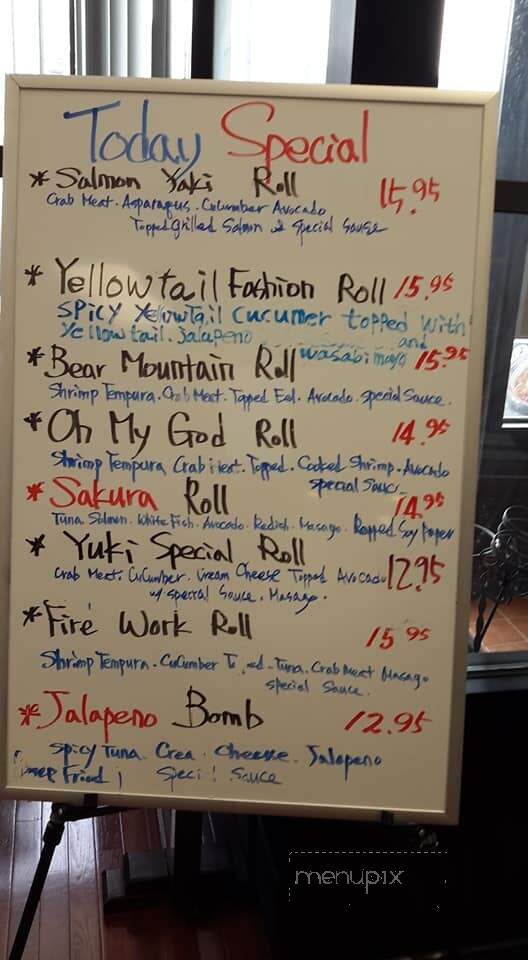 Today Special
* Salmon Yaki Roll 15.95
Crab Meat. Asparagus. Cucumber Avocado
Topped Grilled Salmon & special Sauce
* Yellowtail Fashion Roll 15.95
SPICY Yellowtail Cucumer topped with
Yellowtail. Jalapeno and
wasabi mayo
* Bear Mountain Roll 15.95
Shrimp Tempura. Crab Meat. Topped Eel. Avocado. special Sauce.
* Oh My God Roll 14.95
Shrimp Tempura Crab Meat. Topped. Cooked Shrimp. Avocado
special Sauc
* Sakura Roll 14.95
Tuna. Salmon. White Fish. Avocado. Redish. Masago. Rapped Soy Paper
* Yuki Special Roll 12.95
Crab Meat. CuCumber. Cream Cheese Topped Avocado
w/ special Sauce. Masago.
* Fire Work Roll 15.95
Shrimp Tempura. CuCumber Tuna. Crab Meat Masago
special Sauce.
* Jalapeno Bomb 12.95
Spicy Tuna. Crea. Cheese. Jalapeno
Speci l Sauce
menupix